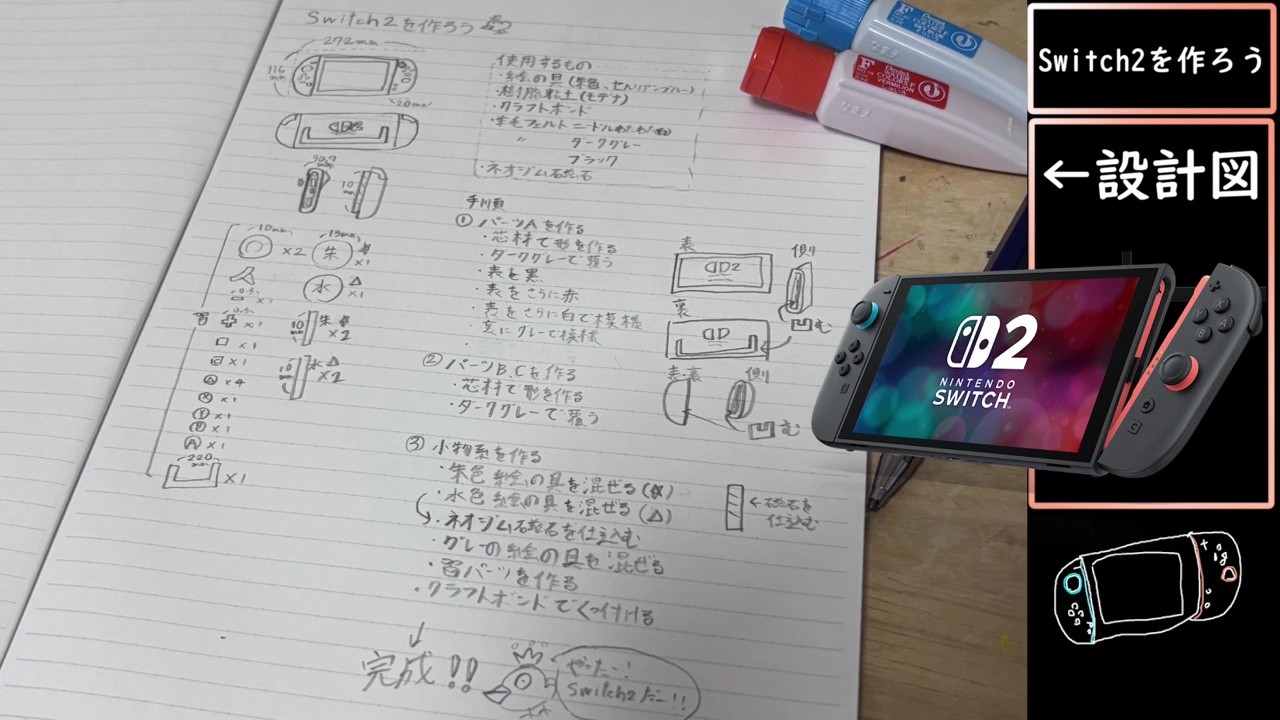 Switch2を作ろう
272mm
116
mm
20mm
使用するもの
・絵の具(朱色、セルリアンブルー)
・樹脂粘土(モデナ)
・クラフトボンド
・羊毛フェルト ニードルわたわた
〃 ダークグレー
ブラック
・ネオジム磁石
30.7
10
mm
手順
① パーツAを作る
・芯材で形を作る
・ダークグレーで覆う
・表を黒
・表をさらに赤
・表をさらに白で模様
・裏にグレーで模様
② パーツB,Cを作る
・芯材で形を作る
・ダークグレーで覆う
③ 小物系を作る
・朱色 絵の具を混ぜる
・水色 絵の具を混ぜる(△)
・ネオジム石磁石を仕込む
・グレーの絵の具を混ぜる
・習パーツを作る
・クラフトボンドでくっ付ける
↓
完成!!
やったー!
Switch2だー!!
10mm
×2
13mm
朱
×1
水
△
×1
×1
×1
10
mm
朱
×2
×1
×1
×4
10
水△
×2
Ⓧ×1
Ⓨ×1
Ⓑ×1
Ⓐ×1
220
mm
×1
表
2
側
裏
凹む
表・裏
側
む
←磁石を
仕込む
F
Pentel
WATER
COLORS F
SKY BLUE
なまえ
F
Pentel
WATER
COLORS F
VERMILION
なまえ
Switch2を作ろう
←設計図
2
NINTENDO
SWITCH
X
Y
A
B
C